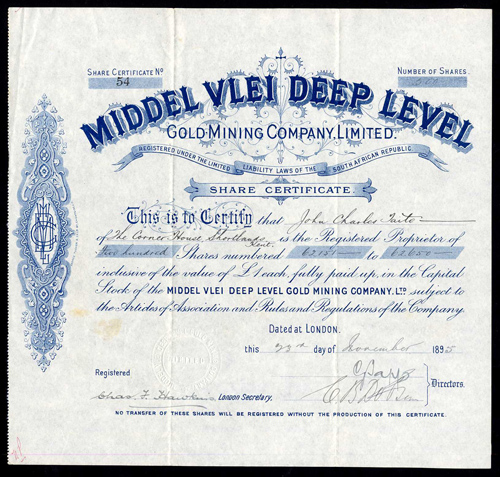 SHARE CERTIFICATE No
54
NUMBER OF SHARES.
MIDDEL VLEI DEEP LEVEL
GOLD MINING COMPANY, LIMITED.
REGISTERED UNDER THE LIMITED LIABILITY LAWS OF THE SOUTH AFRICAN REPUBLIC.
SHARE CERTIFICATE.
This is to Certify that John Charles
of The Corner House Shortlands Kent. is the Registered Proprietor of
five hundred Shares numbered 62151 to 62650
inclusive of the value of £1 each, fully paid up, in the Capital
Stock of the MIDDEL VLEI DEEP LEVEL GOLD MINING COMPANY, LTD subject to
the Articles of Association and Rules and Regulations of the Company.
Dated at LONDON.
this 22nd day of November 1895
Registered
Directors.
Chas. F. Hawkins London Secretary.
NO TRANSFER OF THESE SHARES WILL BE REGISTERED WITHOUT THE PRODUCTION OF THIS CERTIFICATE.